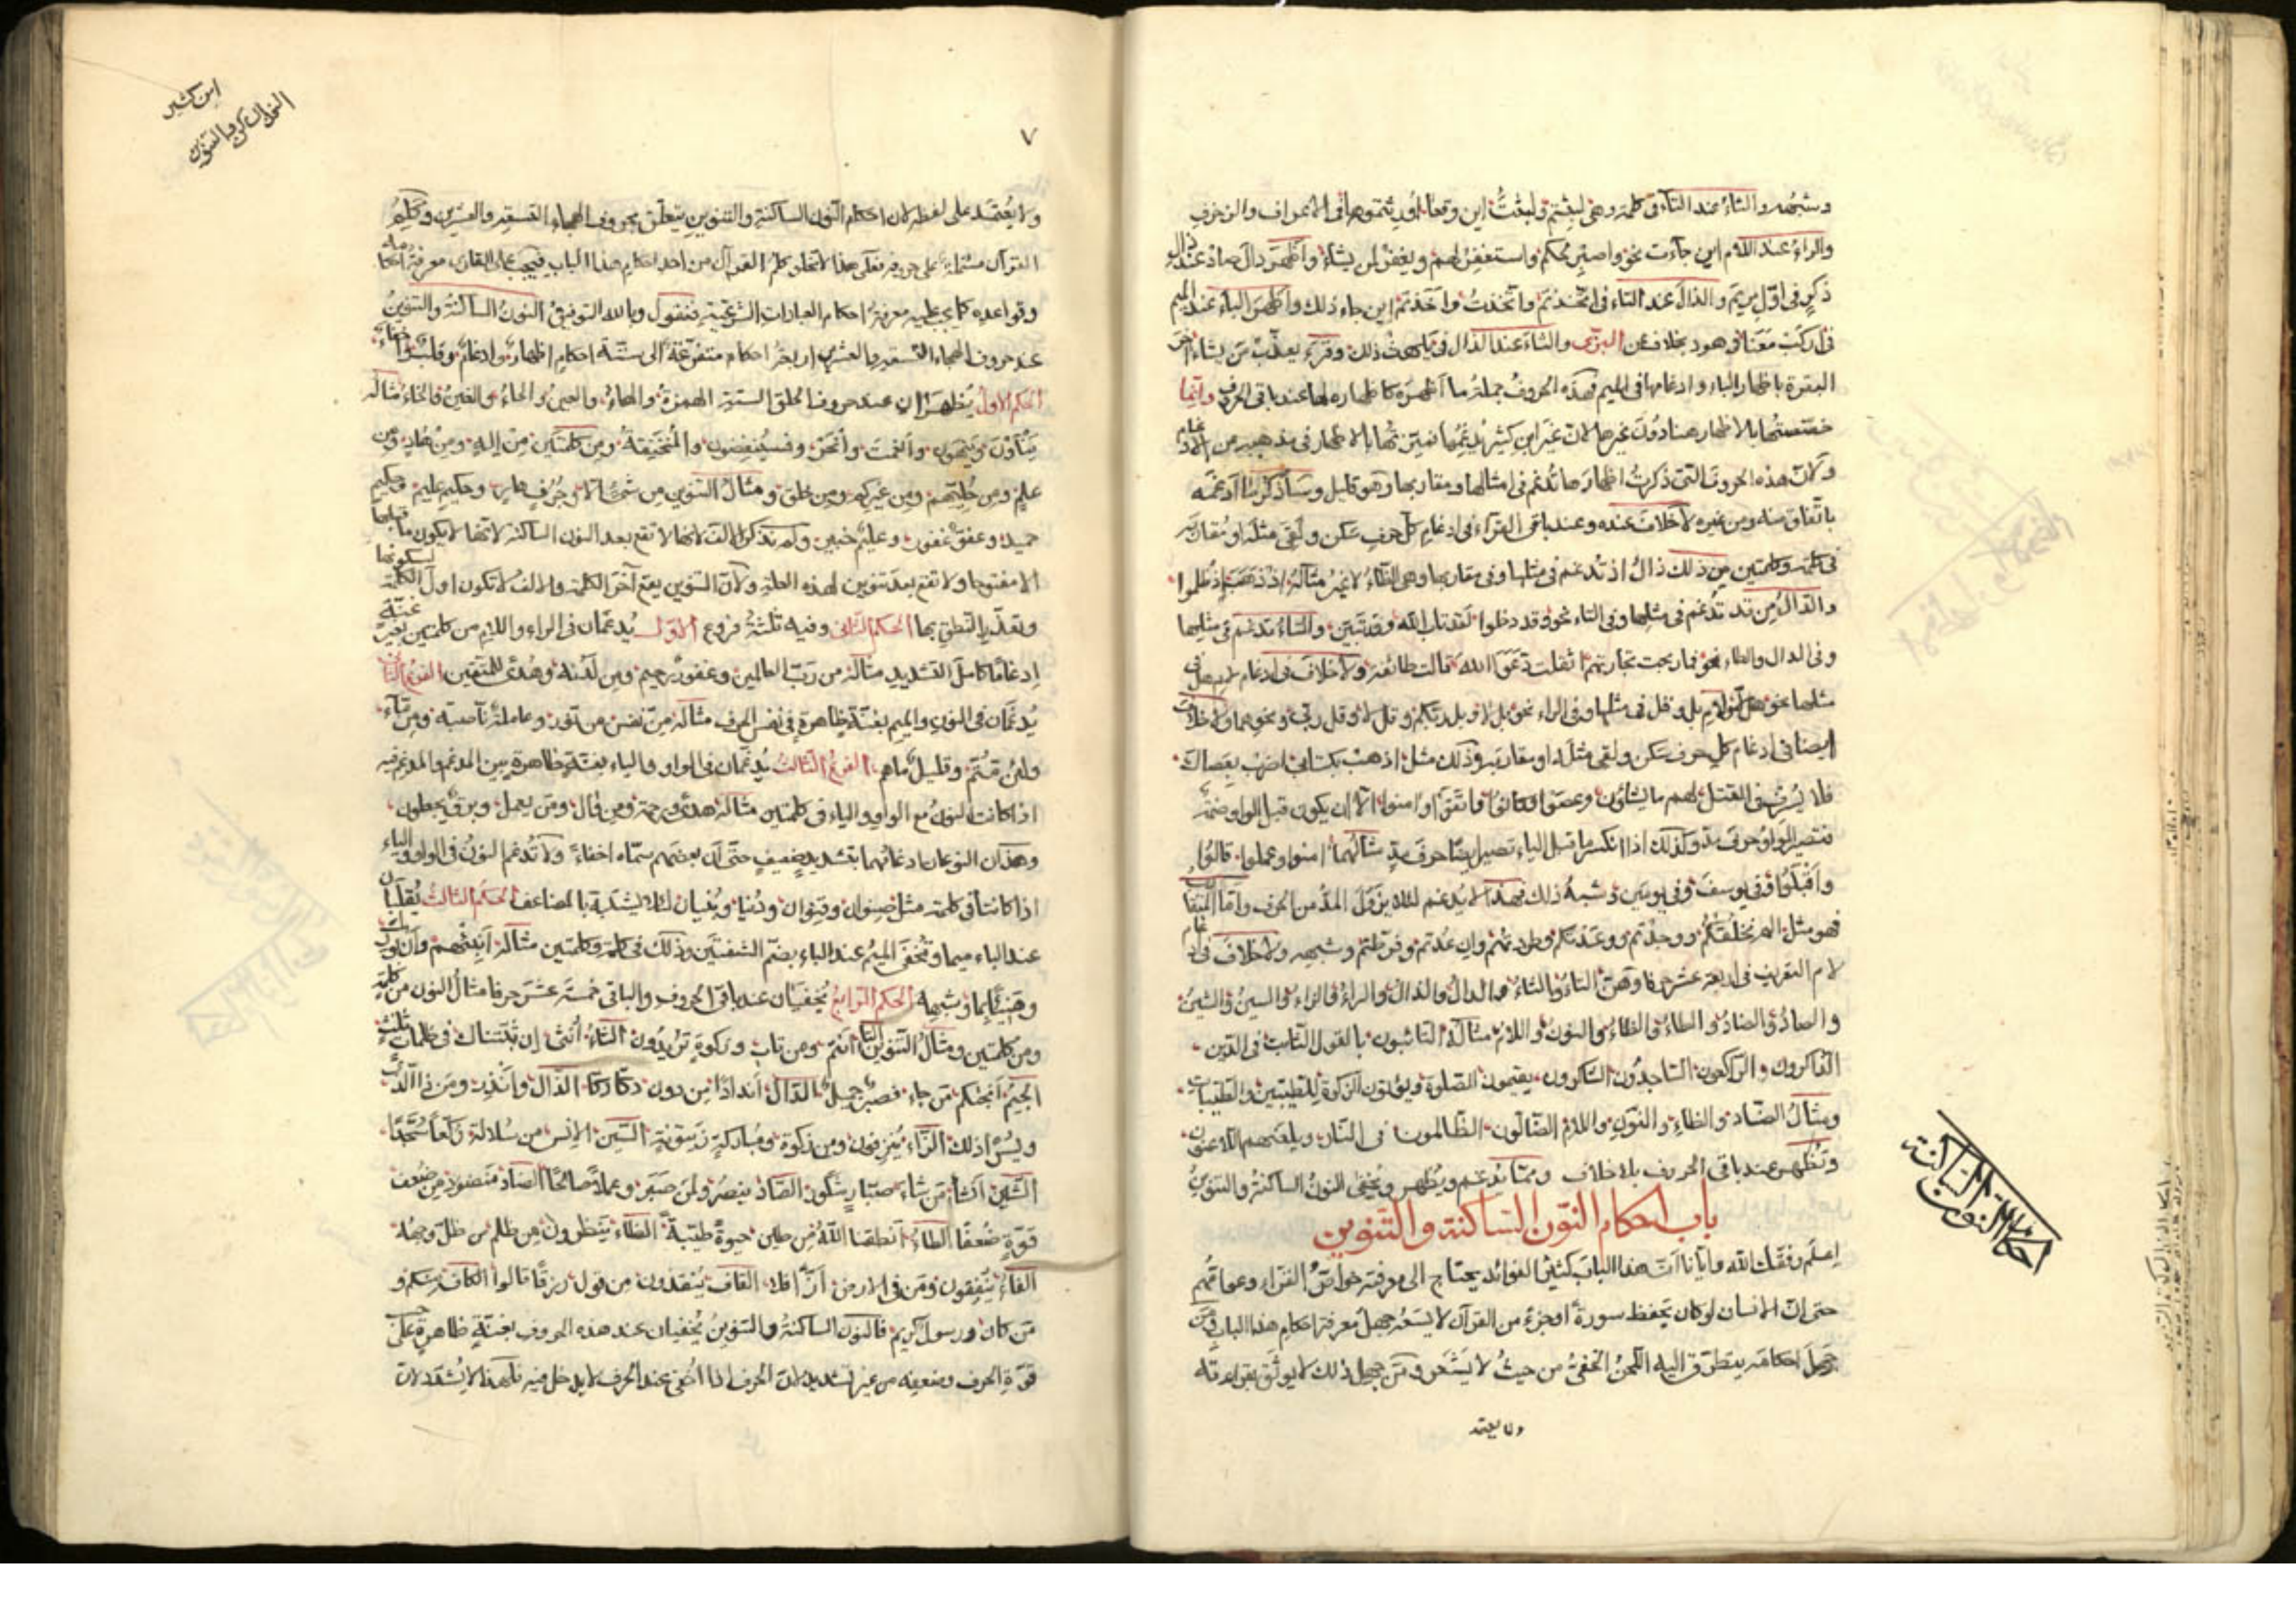 وشبهه والثاء عند التاء في كلمة وهي لبثتم ولبثت اين وقعا اورثتموها في الاعراف والزخرف
والراء عند اللام اين جاءت نحو واصبر لحكم واستغفر لهم ويغفر لمن يشاء واظهر دال صاد عند ذال
ذكر في اول مريم والذال عند التاء في اتخذتم واتخذت واخذتم اين جاء ذلك واظهر الباء عند الميم
في اركب معنا في هود بخلاف عن البزي والثاء عند الذال في يلهث ذلك وقرء يعذب من يشاء اخر
البقرة باظهار الباء وادغامها في الميم فهذه الحروف جملة ما اظهره كاظهاره لها عند باقي الحروف وانما
خصصتها بالاظهار هنا دون غيرها لان غير ابن كثير يدغمها فميزتها بالاظهار في مذهبه من الادغام
ولان هذه الحروف التي ذكرت اظهارها تدغم في امثالها ومقاربها وهو قليل وساذكر ما ادغمه
باتفاق منه ومن غيره لا خلاف عنده وعند باقي القراء في ادغام كل حرف سكن ولقي مثله او مقاربه
في كلمة وكلمتين من ذلك ذال اذ تدغم في مثلها وفي مقاربها وهي الظاء لا غير مثاله اذ ذهب اذ ظلموا
والدال من قد تدغم في مثلها وفي التاء نحو وقد دخلوا لقد تاب الله وقد تبين والتاء تدغم في مثلها
وفي الدال والطاء نحو فما ربحت تجارتهم اثقلت دعوا الله قالت طائفة ولا خلاف في ادغام لام هل في
مثلها نحو هل لنا ولام بل وقل في مثلها وفي الراء نحو بل لا وبل ربكم وقل لا وقل رب ونحوهما ولا خلاف
ايضا في ادغام كل حرف سكن ولقي مثله او مقاربه وذلك مثل اذهب بكتابي اضرب بعصاك
فلا يسرف في القتل لهم ما يشاؤن وعصوا وكانوا فاتقوا وامنوا الا ان يكون قبل الواو ضمة
فتصير الواو حرف مد وكذلك اذا انكسر ما قبل الياء تصير ايضا حرف مد مثالهما امنوا وعملوا قالوا
واقبلوا في يوسف وفي يومين وشبه ذلك فهذا لا يدغم لئلا يزول المد من الحرف واما المتقارب
فهو مثل الم نخلقكم ووجدتم ووعدتكم وطردتهم وان عدتم وفرطتم وشبهه ولا خلاف في ادغام
لام التعريف في اربعة عشر حرفا وهن التاء والثاء والدال والذال والراء والزاء والسين والشين
والصاد والضاد والطاء والظاء والنون واللام مثاله التائبون بالقول الثابت في الدين
الذاكرون والراكعون الساجدون الشاكرون يقيمون الصلوة ويؤتون الزكوة للطيبين والطيبات
ومثال الضاد والظاء والنون واللام الضالون الظالمون في النار ويلعنهم اللاعنون
وتظهر عند باقي الحروف بلا خلاف ومما يدغم ويظهر ويخفى النون الساكنة والتنوين
باب احكام النون الساكنة والتنوين
اعلم وفقك الله وايانا ان هذا الباب كثير الفوائد يحتاج الى معرفته خواص القراء وعوامهم
حتى ان الانسان لو كان يحفظ سورة او جزء من القرآن لا يسعه جهل معرفة احكام هذا الباب ومن
جهل احكامه يتطرق اليه اللحن الخفي من حيث لا يشعر ومن جهل ذلك لا يوثق بقراءته
ولا يعتمد
احكام النون الساكنة
ابن كثير
النون الساكن والتنوين
٧
ولا يعتمد على لفظه لان احكام النون الساكنة والتنوين يتعلق بحروف الهجاء التسعة والعشرين وكلم
القرآن مشتملة على حروفه فعلى هذا لا تخلو كلم القرآن من احد احكام هذا الباب فيجب على القارئ معرفة احكامه
وقواعده كما يجب عليه معرفة احكام العبادات الشرعية فنقول وبالله التوفيق النون الساكنة والتنوين
عند حروف الهجاء التسعة والعشرين اربعة احكام متفرعة الى ستة احكام اظهار وادغام وقلب واخفاء
الحكم الاول يظهران عند حروف الحلق الستة الهمزة والهاء والعين والحاء والغين والخاء مثاله
ينأون وينهون وانعمت وانحر وفسينغضون والمنخنقة ومن كلمتين من اله ومن هاد ومن
علم ومن حليهم ومن غيركم ومن خلق ومثال التنوين من شيء الا وجرف هار وحكيم عليم وحكيم
حميد وعفو غفور وعليم خبير ولم نذكر الالف لانها لا تقع بعد النون الساكنة لانها لا يكون ما قبلها
الا مفتوحا ولا تقع بعد تنوين لهذه العلة ولان التنوين يقع آخر الكلمة والالف لا تكون اول الكلمة لسكونها
وتعذر النطق بها الحكم الثاني وفيه ثلثة فروع الاول يدغمان في الراء واللام من كلمتين بغير غنة
ادغاما كامل التشديد مثاله من رب العالمين وغفور رحيم ومن لدنه وهدى للمتقين الفرع الثاني
يدغمان في النون والميم بغنة ظاهرة في نفس الحرف مثاله من نفس من نور وعاملة ناصبة ومن ماء
ولئن متم وقليل ما هم الفرع الثالث يدغمان في الواو والياء بغنة ظاهرة بين المدغم والمدغم فيه
اذا كانت النون مع الواو والياء في كلمتين مثاله هدى ورحمة ومن وال ومن يعمل وبرق يجعلون
وهذان النوعان ادغامهما بتشديد ضعيف حتى ان بعضهم سماه اخفاء ولا تدغم النون في الواو والياء
اذا كانتا في كلمة مثل صنوان وقنوان ودنيا وبنيان لئلا يشتبه بالمضاعف الحكم الثالث يقلبان
عند الباء ميما وتخفى الميم عند الباء بضم الشفتين وذلك في كلمة وكلمتين مثاله انبئهم وان بورك
وهنيئا بما وشبهه الحكم الرابع يخفيان عند باقي الحروف والباقي خمسة عشر حرفا مثال النون من كلمة
ومن كلمتين ومثال التنوين التاء انتم ومن تاب وزكوة تريدون الثاء انثى ان ثبتناك في ظلمات ثلث
الجيم انجيكم من جاء فصبر جميل الدال اندادا من دون دكا دكا الذال وانذر ومن ذا الذي
ويسر اذلك الزاء ينزفون ومن زكوة ومباركة زيتونة السين الانس من سلالة ركعا سجدا
الشين انشأ من شاء صبار شكور الصاد ينصر ولمن صبر وعملا صالحا الضاد منضود من ضعف
قوة ضعفا الطاء انطقنا الله من طين حيوة طيبة الظاء ينظرون من ظلم من ظل وجهه
الفاء ينفقون ومن في الارض القاف ينقذون من قول رزقا قالوا الكاف منكم و
من كان ورسول كريم فالنون الساكنة والتنوين يخفيان عند هذه الحروف بغنة ظاهرة على حسب
قوة الحرف وضعفه من غير تشديد لان الحرف اذا اخفي عند الحرف لا يدخل فيه فلهذا لا يشدد لان